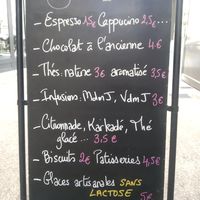 - Espresso 15€ Cappucino 2,5€...
- Chocolat à l'ancienne 4€
- Thés nature 3€ aromatisé 3,5
- Infusions MdmJ, VdmJ 3€
- Citronnade, Karkadé, Thé
glacé... 3,5€
- Biscuits 2€ Patisseries 4,5€
- Glaces artisanales SANS
LACTOSE 5€